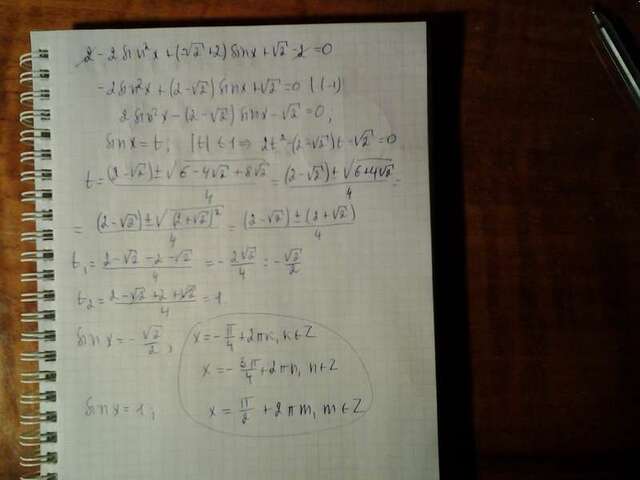 2 - 2 sin²x + (-√2 + 2) sinx + √2 - 2 = 0
- 2 sin²x + (2 - √2) sinx + √2 = 0 | (-1)
2 sin²x - (2 - √2) sinx - √2 = 0;
sinx = t; |t| ≤ 1 ⇒ 2t² - (2 - √2)t - √2 = 0
t = ((2 - √2) ± √(6 - 4√2 + 8√2))/4 = ((2 - √2) ± √(6 + 4√2))/4 =
= ((2 - √2) ± √((2 + √2)²))/4 = ((2 - √2) ± (2 + √2))/4
t₁ = (2 - √2 - 2 - √2)/4 = - 2√2/4 = - √2/2
t₂ = (2 - √2 + 2 + √2)/4 = 1
sin x = - √2/2; x = - π/4 + 2πk, k ∈ Z
x = - 3π/4 + 2πn, n ∈ Z
sin x = 1; x = π/2 + 2πm, m ∈ Z